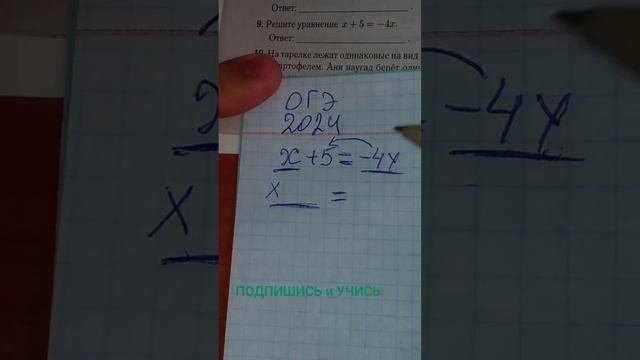 Ответ:
9. Решите уравнение x + 5 = −4x.
Ответ:
10. На тарелке лежат одинаковые на вид
картофелем. Аня наугад берёт
ОГЭ
2024
x + 5 = −4x
x =
ПОДПИШИСЬ и УЧИСЬ